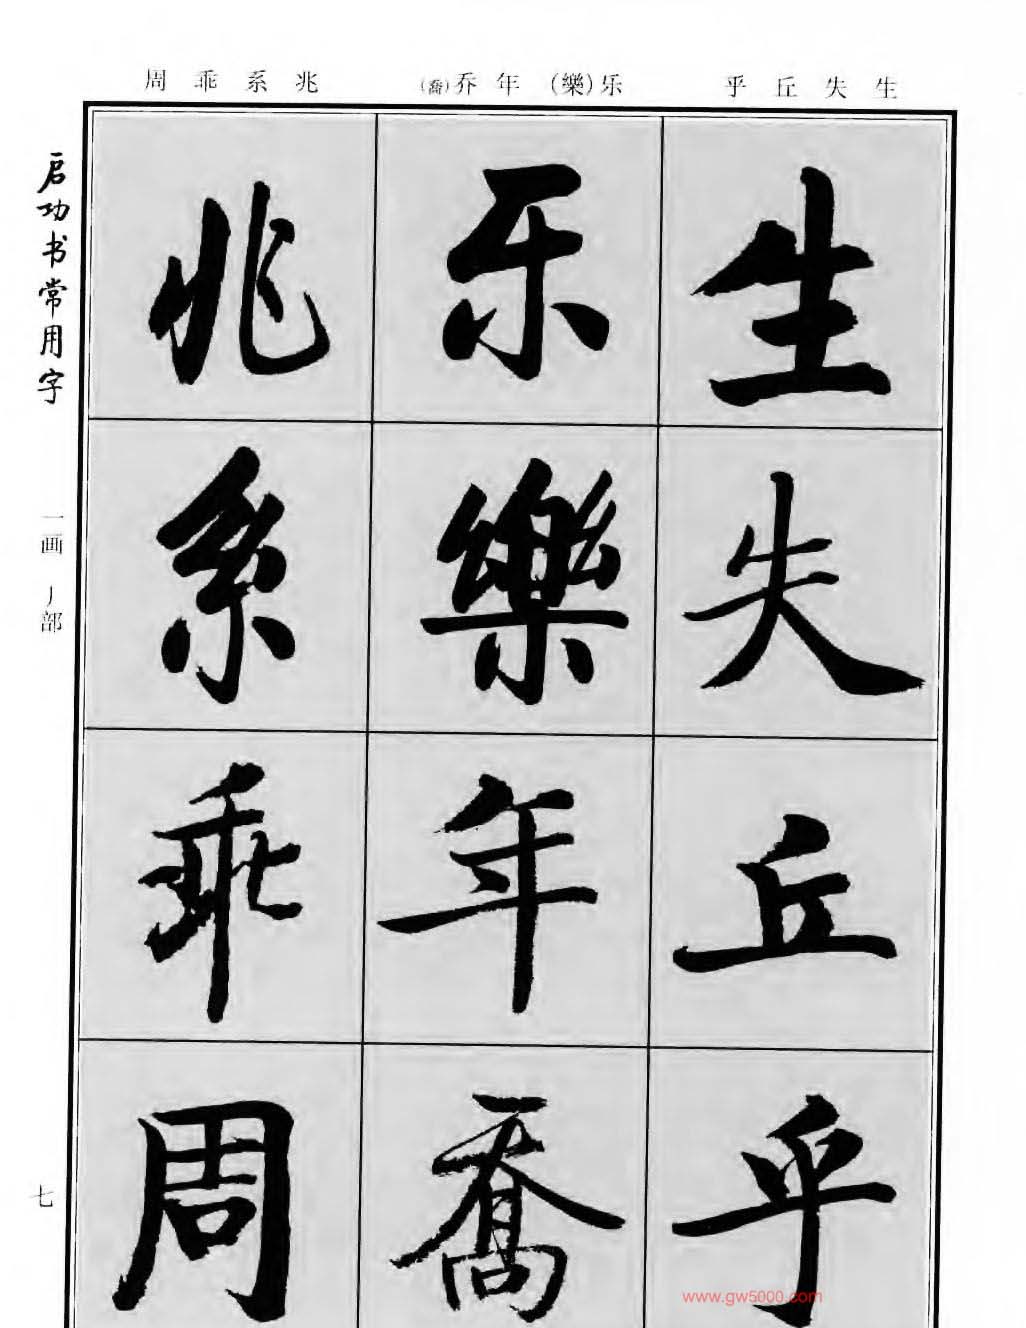 生失丘乎
乐(樂)年乔(喬)
兆系乖周
生失丘乎
乐樂年喬
兆系乖周
启功书常用字
一画 丿部
七
www.gw5000.com